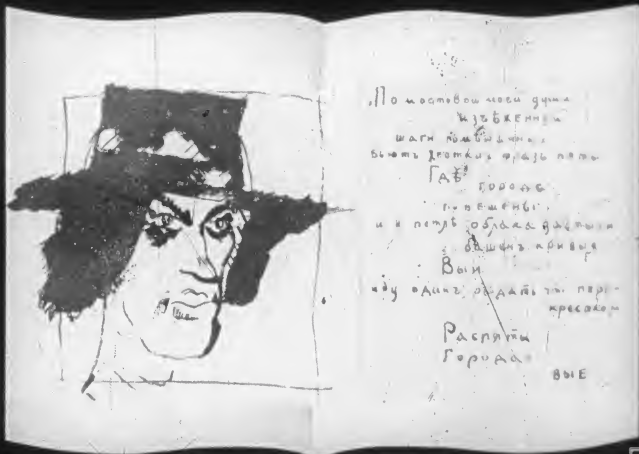 „По мостовой моей души
изъѣженной
шаги помѣшаных
вьютъ фразъ пяты
Гдѣ
города
повѣшены
и в петлѣ облака застыли
башенъ кривые
Выи
иду одинъ рыдать что пере-
крестком
Распяты
Города
вые